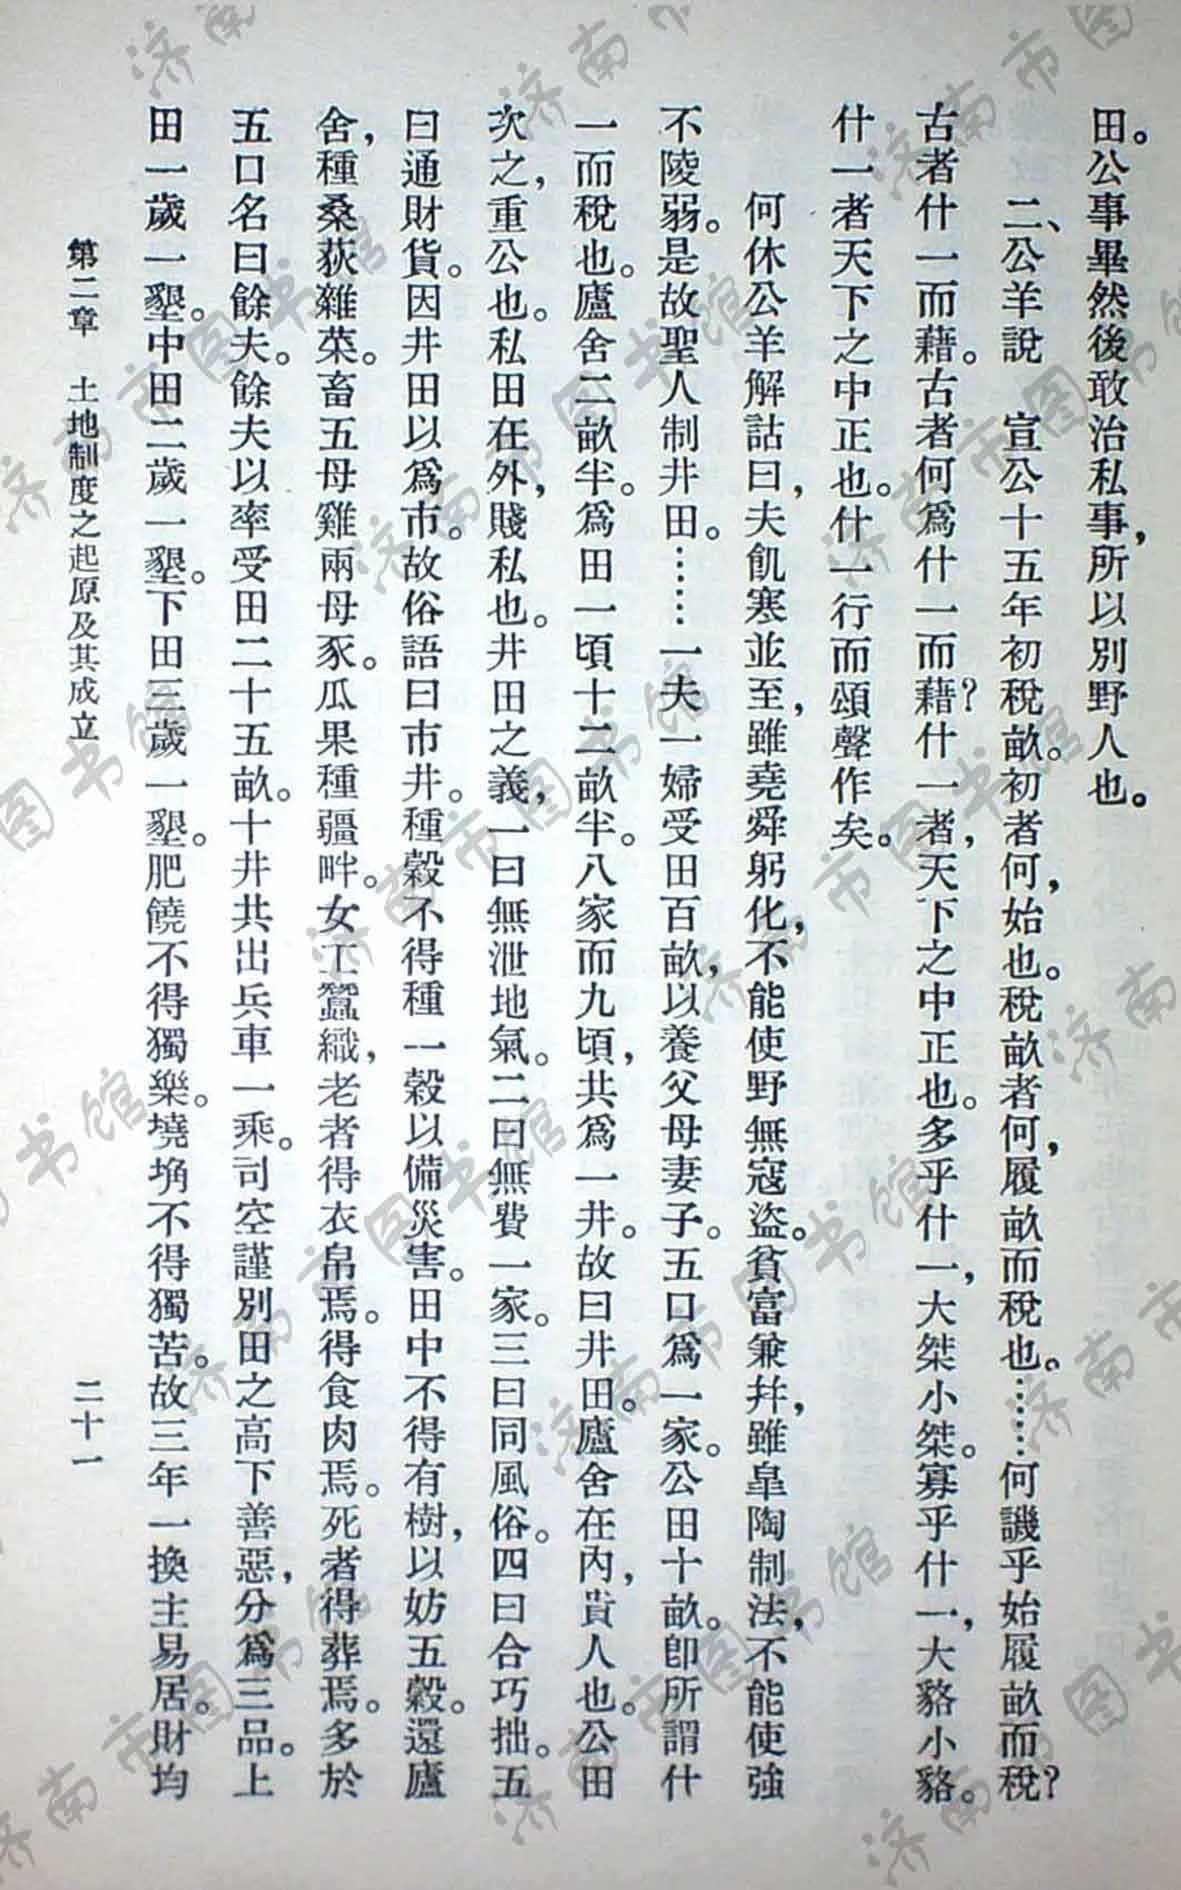 田。公事畢然後敢治私事，所以別野人也。
二、公羊說　宣公十五年初稅畝。初者何，始也。稅畝者何，履畝而稅也。……何譏乎始履畝而稅？
古者什一而藉。古者何爲什一而藉？什一者，天下之中正也。多乎什一，大桀小桀。寡乎什一，大貉小貉。
什一者天下之中正也。什一行而頌聲作矣。
何休公羊解詁曰，夫飢寒並至，雖堯舜躬化，不能使野無寇盜。貧富兼幷，雖臯陶制法，不能使強
不陵弱。是故聖人制井田。……一夫一婦受田百畝，以養父母妻子。五口爲一家。公田十畝。卽所謂什
一而稅也。廬舍二畝半。爲田一頃十二畝半。八家而九頃，共爲一井。故曰井田。廬舍在內，貴人也。公田
次之，重公也。私田在外，賤私也。井田之義，一曰無泄地氣。二曰無費一家。三曰同風俗。四曰合巧拙。五
曰通財貨。因井田以爲市。故俗語曰市井。種穀不得種一穀以備災害。田中不得有樹，以妨五穀。還廬
舍，種桑荻雜菜。畜五母雞兩母豕。瓜果種疆畔。女工蠶織，老者得衣帛焉。得食肉焉。死者得葬焉。多於
五口名曰餘夫。餘夫以率受田二十五畝。十井共出兵車一乘。司空謹別田之高下善惡，分爲三品。上
田一歲一墾。中田二歲一墾。下田三歲一墾。肥饒不得獨樂。墝埆不得獨苦。故三年一換主易居。財均
第二章　土地制度之起原及其成立　二十一
济南市图书馆